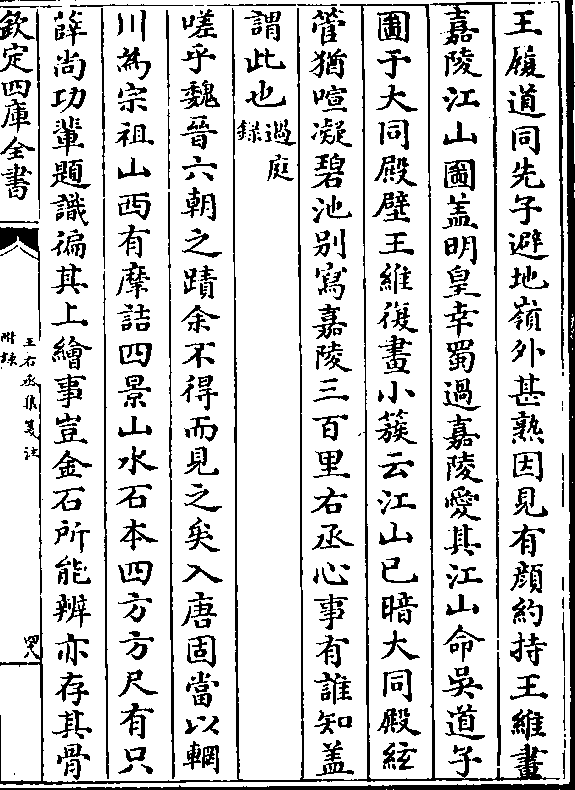 王履道同先子避地嶺外甚熟因見有顔約持王維畫
嘉陵江山圖盖明皇幸蜀過嘉陵愛其江山命吳道子
圖于大同殿壁王維復畫小簇云江山已暗大同殿絃
管猶喧凝碧池别寫嘉陵三百里右丞心事有誰知盖
謂此也過庭録
嗟乎魏晉六朝之蹟余不得而見之矣入唐固當以輞
川為宗祖山西有摩詰四景山水石本四方方尺有只
薛尚功輩題識徧其上繪事豈金石所能辨亦存其骨
欽定四庫全書
王右丞集箋注
附錄